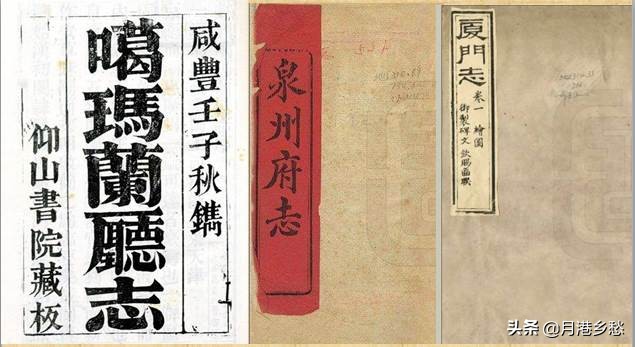 咸豐壬子秋鐫
噶瑪蘭廳志
仰山書院藏板
泉州府志
廈門志
卷一 繪圖
御製碑文 欽賜匾聯
头条 @月港乡愁